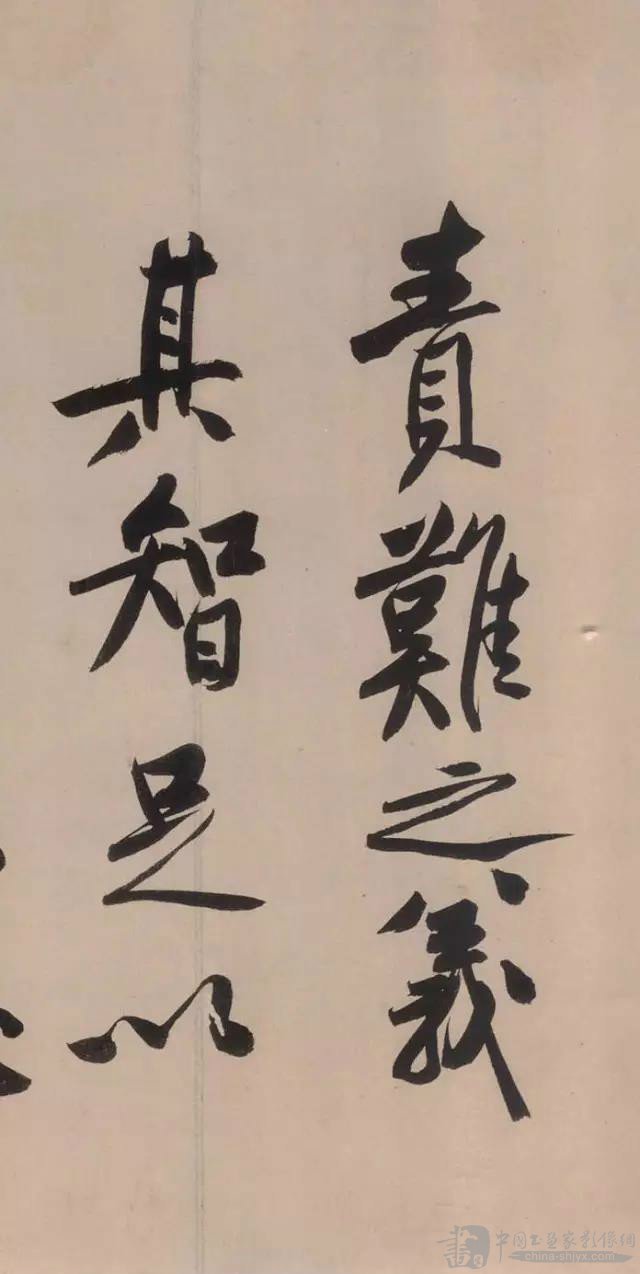 責難之義
其智足以
書
中國书画家影像網
china-shjyx.com